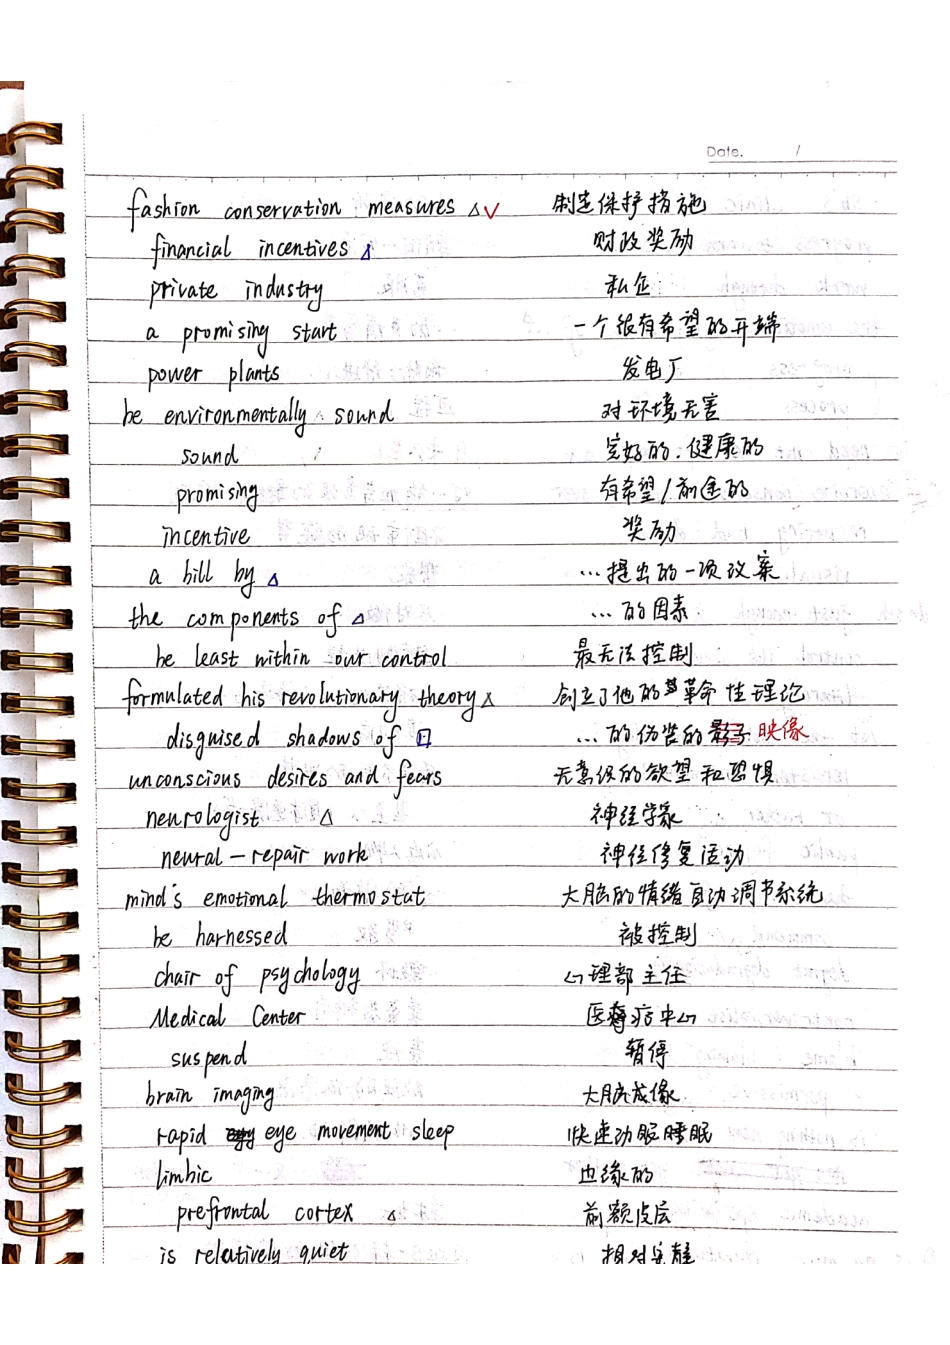 Date. /
fashion conservation measures △√ 制造保护措施
financial incentives △ 财政奖励
private industry 私企
a promising start 一个很有希望的开端
power plants 发电厂
be environmentally sound 对环境无害
sound 完好的.健康的
promising 有希望/前途的
incentive 奖励
a bill by △ ...提出的一项议案
the components of △ ...的因素
be least within our control 最无法控制
formulated his revolutionary theory △ 创立了他的革命性理论
disguised shadows of ...的伪装的映像
unconscious desires and fears 无意识的欲望和恐惧
neurologist △ 神经学家
neural-repair work 神经修复活动
mind's emotional thermostat 大脑的情绪自动调节系统
be harnessed 被控制
chair of psychology 心理部主任
Medical Center 医疗中心
suspend 暂停
brain imaging 大脑成像
rapid eye movement sleep 快速动眼睡眠
limbic 边缘的
prefrontal cortex △ 前额皮层
is relatively quiet 相对安静